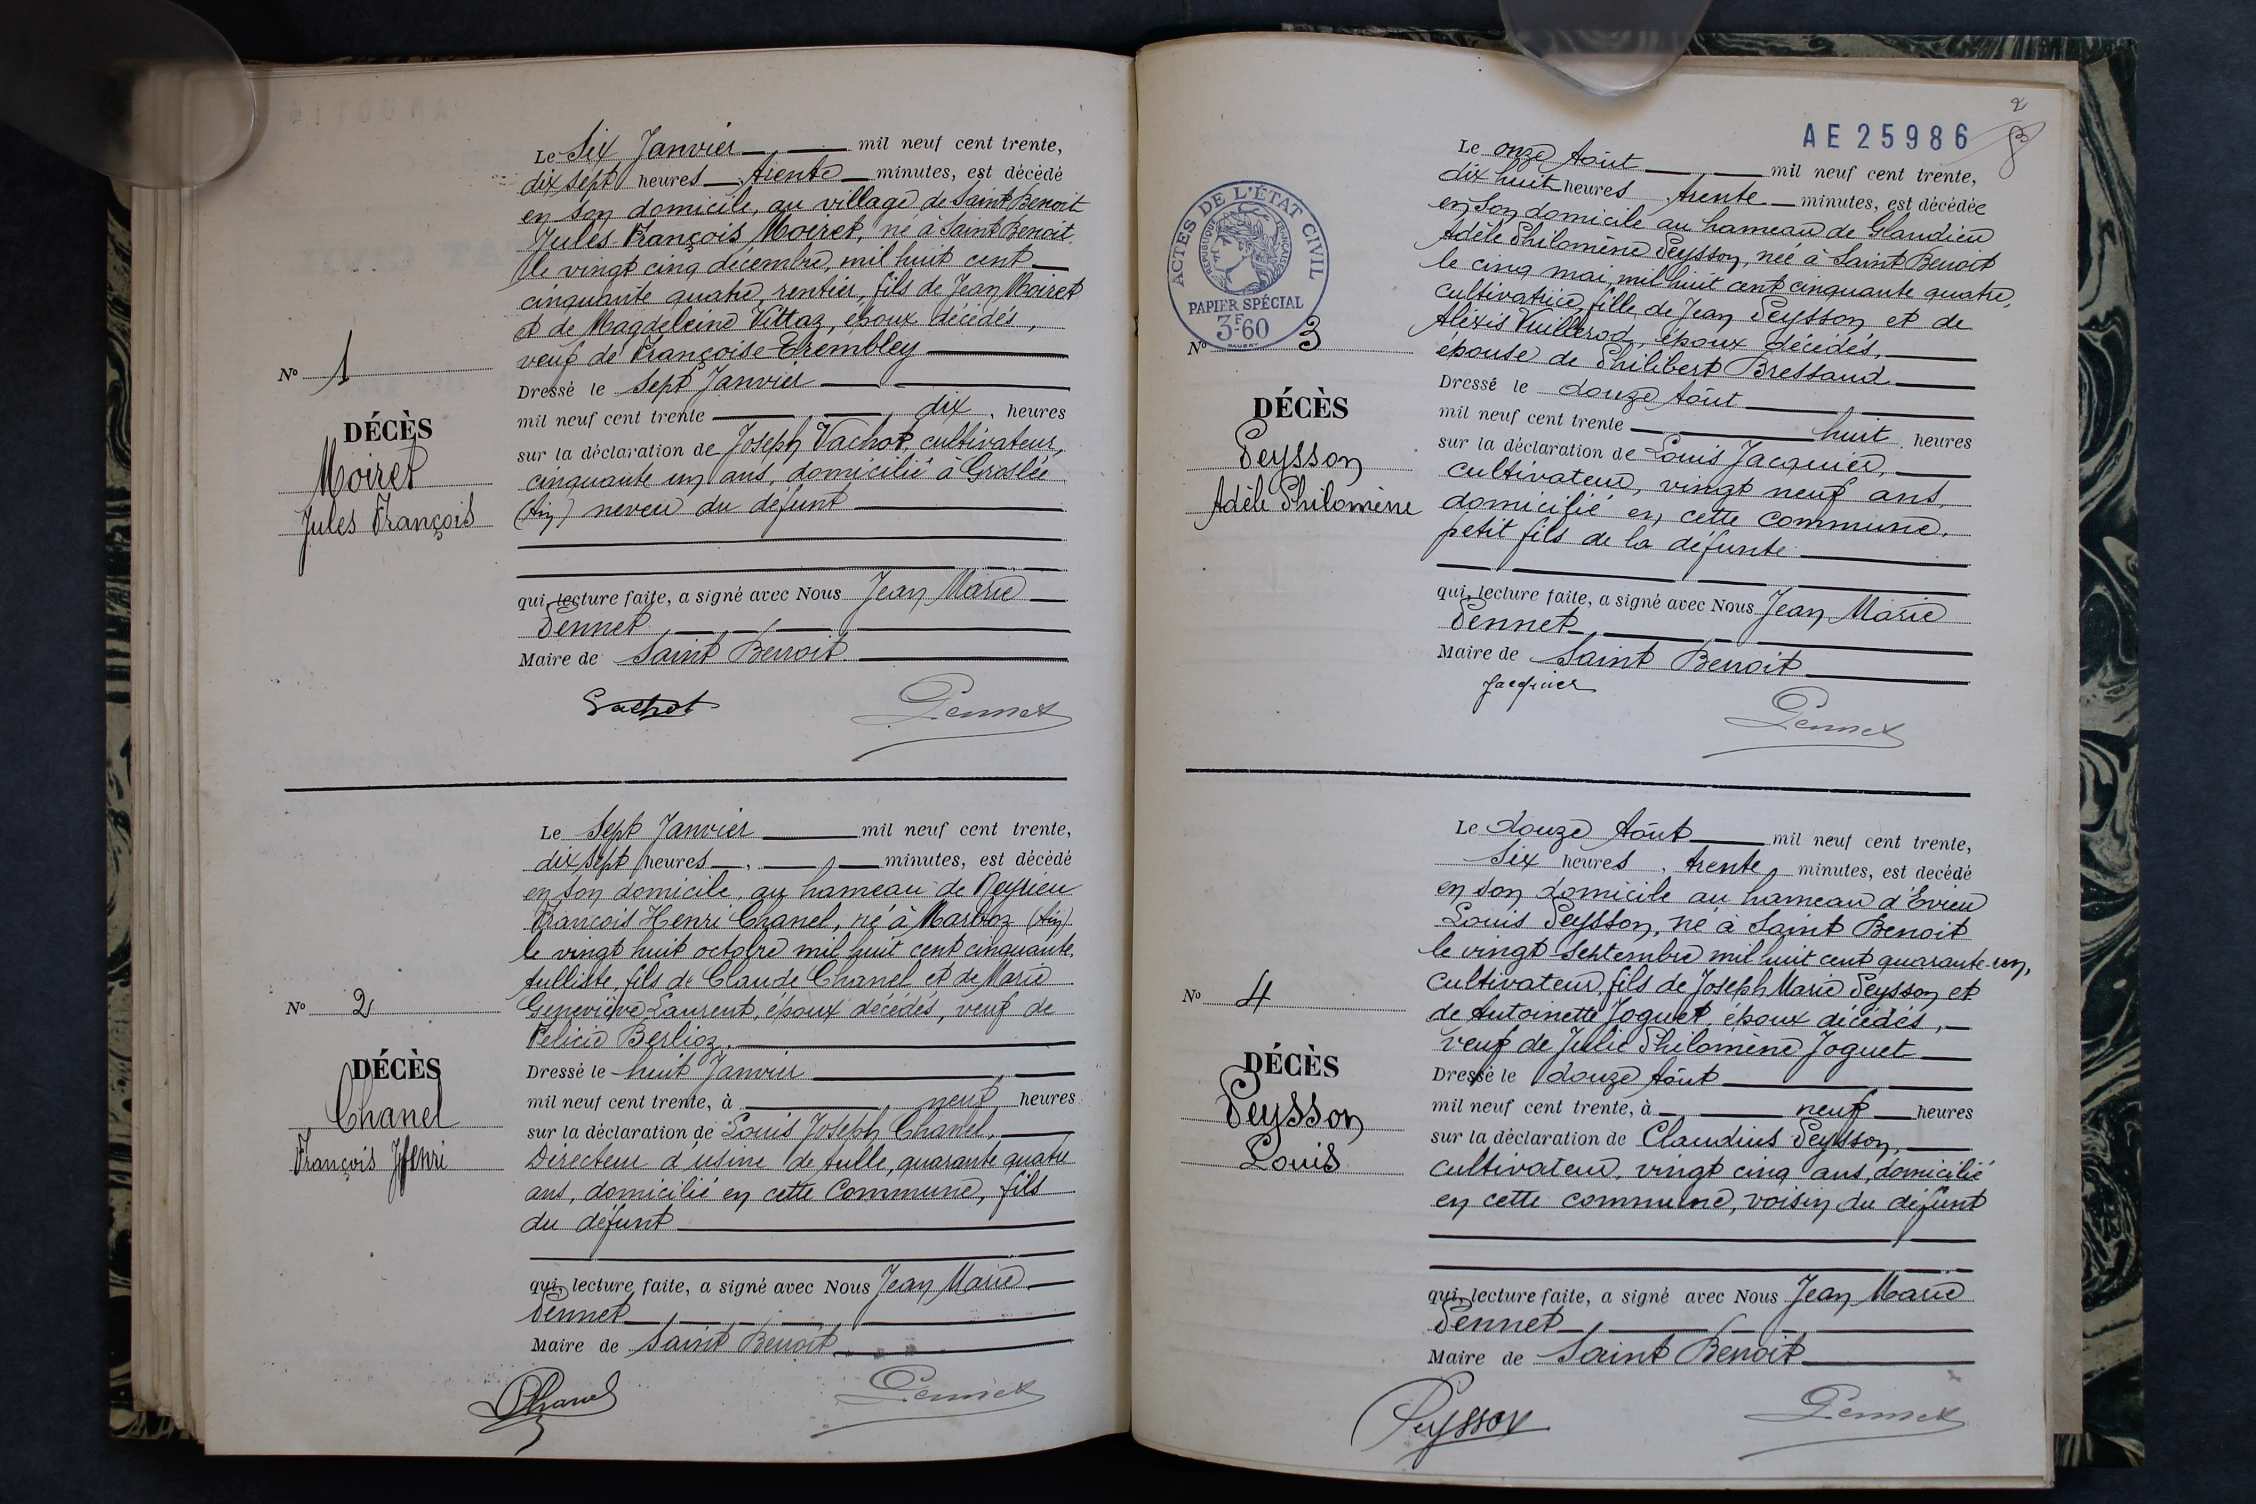 Le Six Janvier mil neuf cent trente,
dix sept heures trente minutes, est décédé
en son domicile, au village de Saint Benoit
Jules François Moiret, né à Saint Benoit
le vingt cinq décembre, mil huit cent
cinquante quatre, rentier, fils de Jean Moiret
et de Magdeleine Vittaz, époux décédés,
veuf de Françoise Trembley
Nº 1
DÉCÈS
Moiret
Jules François
Dressé le sept Janvier
mil neuf cent trente dix heures
sur la déclaration de Joseph Vachot, cultivateur,
cinquante un ans, domicilié à Groslée
(Ain) neveu du défunt
qui, lecture faite, a signé avec Nous Jean Marie
Pennet
Maire de Saint Benoit
Vachot Pennet
Le Sept Janvier mil neuf cent trente,
dix sept heures minutes, est décédé
en son domicile, au hameau de Neyrieu
François Henri Chanel, né à Marboz (Ain)
le vingt huit octobre mil huit cent cinquante,
tulliste, fils de Claude Chanel et de Marie
Geneviève Laurent, époux décédés, veuf de
Félicie Berlioz.
Nº 2
DÉCÈS
Chanel
François Henri
Dressé le huit Janvier
mil neuf cent trente, à neuf heures
sur la déclaration de Louis Joseph Chanel,
Directeur d'usine de tulle, quarante quatre
ans, domicilié en cette Commune, fils
du défunt
qui, lecture faite, a signé avec Nous Jean Marie
Pennet
Maire de Saint Benoit
Chanel Pennet
2
AE 25986
ACTES DE L'ÉTAT CIVIL
RÉPUBLIQUE FRANÇAISE
PAPIER SPÉCIAL
3F60
Le onze Août mil neuf cent trente,
dix huit heures trente minutes, est décédée
en son domicile au hameau de Glandieu
Adèle Philomène Peysson, née à Saint Benoit
le cinq mai, mil huit cent cinquante quatre,
cultivatrice, fille de Jean Peysson et de
Alexis Vuillerod, époux décédés,
épouse de Philibert Bressand
Nº 3
DÉCÈS
Peysson
Adèle Philomène
Dressé le douze Août
mil neuf cent trente huit heures
sur la déclaration de Louis Jacquier,
cultivateur, vingt neuf ans,
domicilié en cette commune,
petit fils de la défunte
qui, lecture faite, a signé avec Nous Jean Marie
Pennet
Maire de Saint Benoit
Jacquier Pennet
Le douze Août mil neuf cent trente,
Six heures, trente minutes, est decédé
en son domicile au hameau d'Evieu
Louis Peysson, né à Saint Benoit
le vingt Septembre mil huit cent quarante-un,
cultivateur, fils de Joseph Marie Peysson et
de Antoinette Joguet, époux décédés,
veuf de Julie Philomène Joguet
Nº 4
DÉCÈS
Peysson
Louis
Dressé le douze Août
mil neuf cent trente, à neuf heures
sur la déclaration de Claudius Peysson,
cultivateur, vingt cinq ans, domicilié
en cette commune, voisin du défunt
qui, lecture faite, a signé avec Nous Jean Marie
Pennet
Maire de Saint Benoit
Peysson Pennet